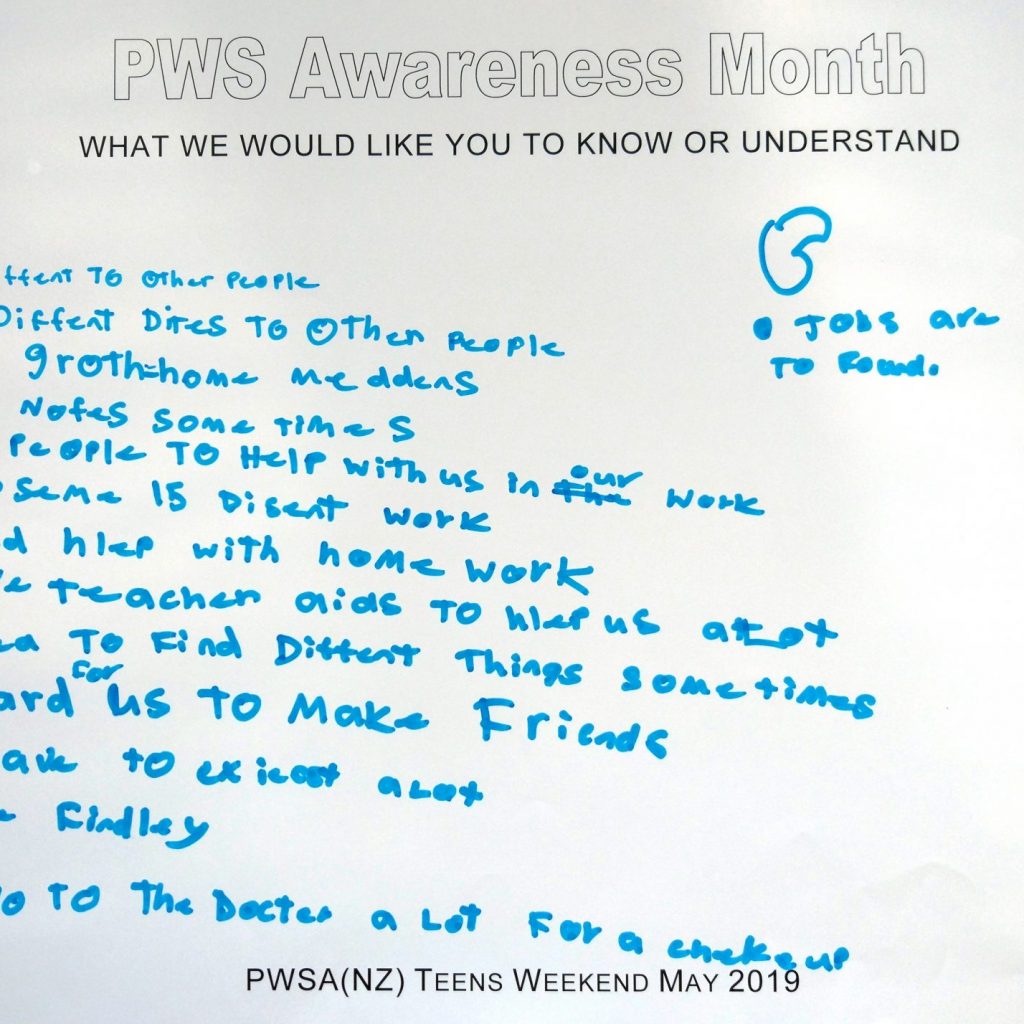 PWS Awareness Month
WHAT WE WOULD LIKE YOU TO KNOW OR UNDERSTAND
ffent TO Other People
Diffent Dites TO Other People
groth=home meddens
Notes some times
People TO Help with us in our work
seme 15 Disent work
d hlep with home work
e teacher aids to hlep us alot
ea To Find Diffent Things sometimes
ard for us to Make Friends
ave to exicost alot
Findley
o To The Docter a Lot For a cheke up
o Jobs are
to Found.
PWSA(NZ) TEENS WEEKEND MAY 2019